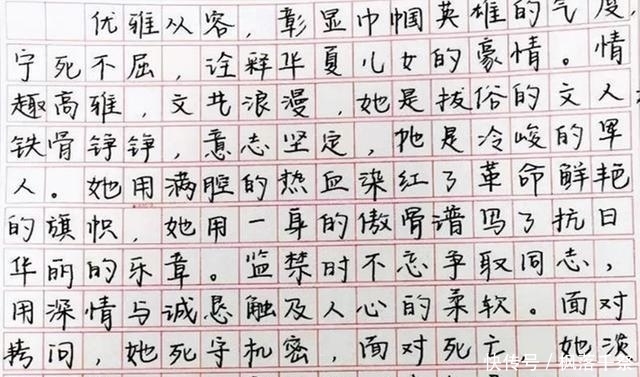 优雅从容，彰显巾帼英雄的气度
宁死不屈，诠释华夏儿女的豪情。情
趣高雅，文艺浪漫，她是拔俗的文人
铁骨铮铮，意志坚定，她是冷峻的军
人。她用满腔的热血染红了革命鲜艳
的旗帜，她用一身的傲骨谱写了抗日
华丽的乐章。监禁时不忘争取同志，
用深情与诚恳触及人心的柔软。面对
拷问，她死守机密，面对死亡，她淡
快传号／枫落千奈